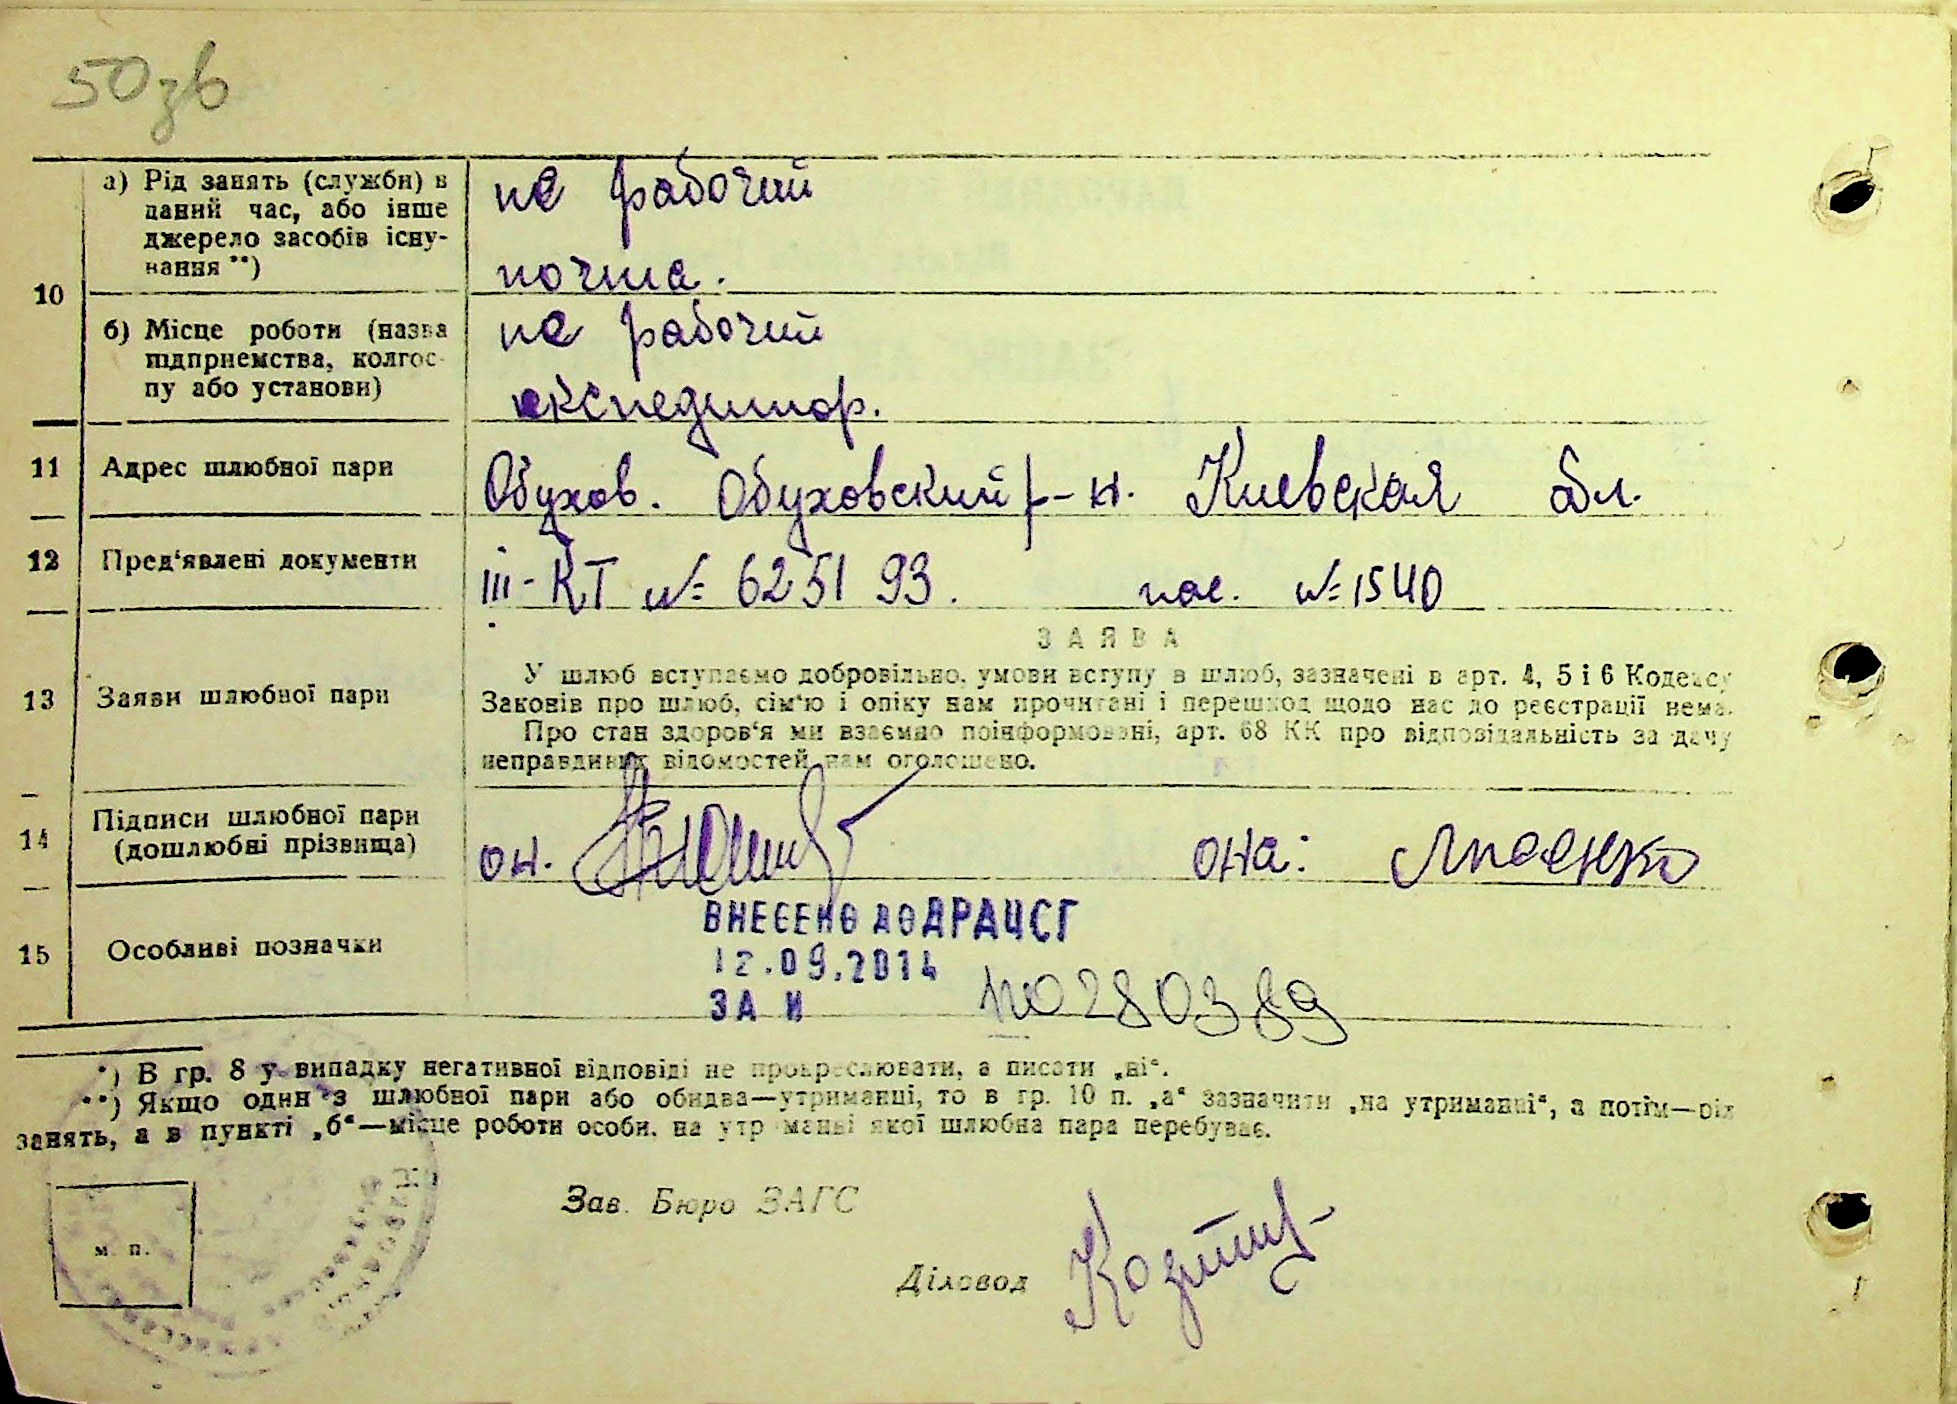 50зв
а) Рід занять (служби) в
даний час, або інше
джерело засобів існу-
вання **)
не рабочий
почта.
10
б) Місце роботи (назва
підприємства, колгос-
пу або установи)
не рабочий
експедитор.
11 Адрес шлюбної пари Обухов. Обуховский р-н. Киевская обл.
12 Пред‘явлені документи III-КТ № 625193. пас. № 1540
ЗАЯВА
13 Заяви шлюбної пари
У шлюб вступаємо добровільно, умови вступу в шлюб, зазначені в арт. 4, 5 і 6 Кодексу
Законів про шлюб, сім‘ю і опіку нам прочитані і перешкод щодо нас до реєстрації нема.
Про стан здоров‘я ми взаємно поінформовані, арт. 68 КК про відповідальність за дачу
неправдивих відомостей нам оголошено.
14 Підписи шлюбної пари
(дошлюбні прізвища)
он. она:
15 Особливі позначки
ВНЕСЕНО ДО ДРАЦСГ
12.09.2014
ЗА № 00280389
*) В гр. 8 у випадку негативної відповіді не прокреслювати, а писати „ні“.
**) Якщо один з шлюбної пари або обидва—утриманці, то в гр. 10 п. „а“ зазначити „на утриманні“, а потім—рід
занять, а в пункті „б“—місце роботи особи, на утриманні якої шлюбна пара перебуває.
м. п.
Зав. Бюро ЗАГС
Діловод